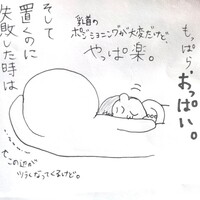 もっぱらおっぱい。
乳首の
ポジショニングが大変だけど、
やっぱ楽。
そして
置くのに
失敗した時は
この辺が
ツラくなってくるけど。